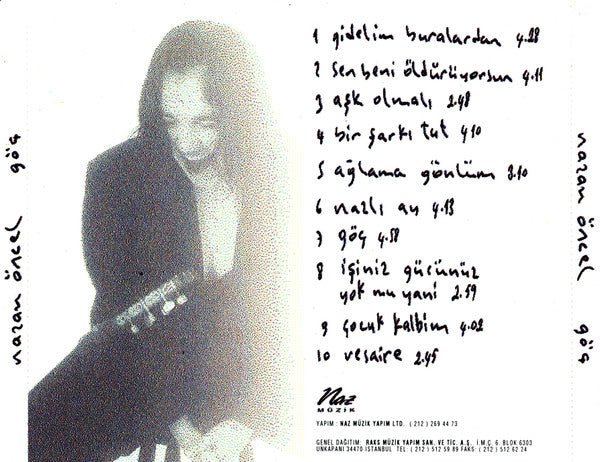 nazan öncel göç
1 gidelim buralardan 4.28
2 sen beni öldürüyorsun 4.11
3 aşk olmalı 2.48
4 bir şarkı tut 4.10
5 ağlama gönlüm 3.10
6 nazlı ay 4.13
7 göç 4.58
8 işiniz gücünüz
yok mu yani 2.59
9 çocuk kalbim 4.02
10 vesaire 2.45
Naz
MÜZİK
YAPIM : NAZ MÜZİK YAPIM LTD. ( 212 ) 269 44 73
GENEL DAĞITIM: RAKS MÜZİK YAPIM SAN. VE TİC. A.Ş. İ.M.Ç. 6. BLOK 6303
UNKAPANI 34470 İSTANBUL TEL: ( 212 ) 512 59 89 FAKS: ( 212 ) 512 62 24
nazan öncel göç